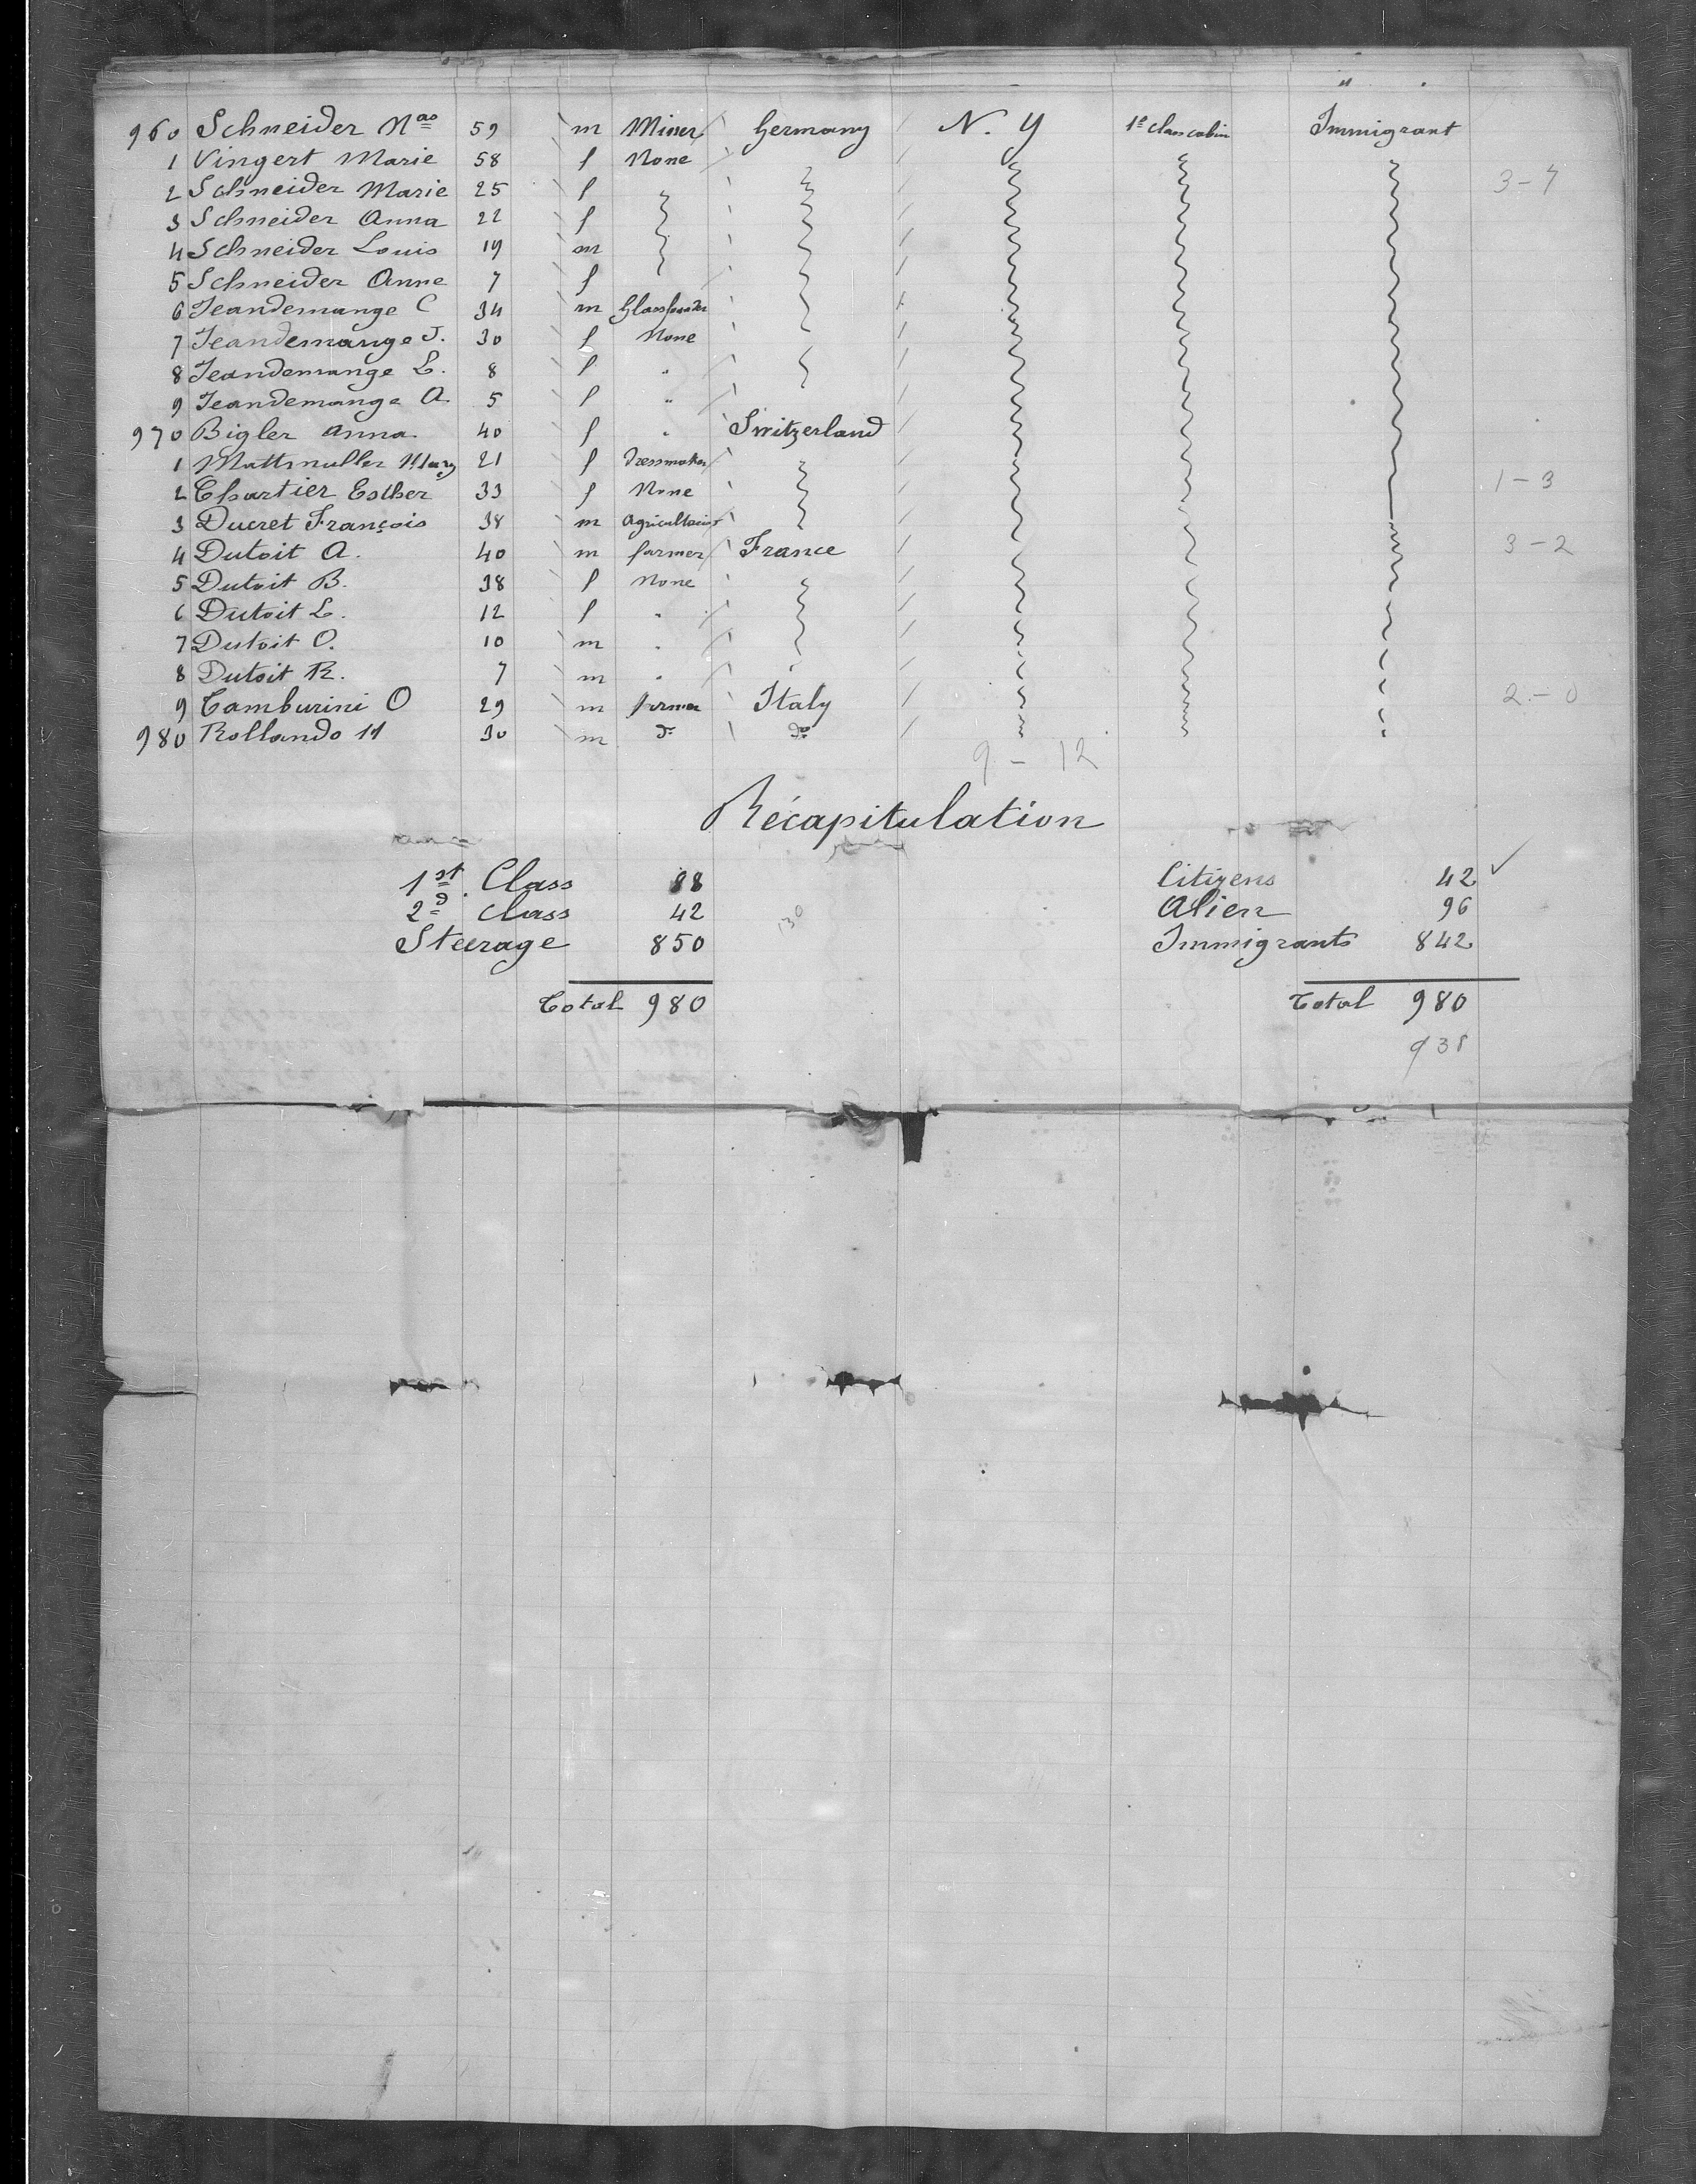 960 Schneider Nas 59 m Miner Germany N. Y 1e class cabin Immigrant
1 Vingert Marie 58 f None
2 Schneider Marie 25 f 3-7
3 Schneider Anna 22 f
4 Schneider Louis 19 m
5 Schneider Anne 7 f
6 Jeandemange C 34 m
7 Jeandemange J. 30 f None
8 Jeandemange L. 8 f "
9 Jeandemange A 5 f "
970 Bigler Anna 40 f " Switzerland
1 Mattmuller Mary 21 f Dressmaker
2 Chartier Esther 33 f None 1-3
3 Ducret François 38 m
4 Dutoit A. 40 m farmer France 3-2
5 Dutoit B. 38 f None
6 Dutoit L. 12 f "
7 Dutoit O. 10 m "
8 Dutoit R. 7 m "
9 Tamburini O 29 m farmer Italy 2-0
980 Rollando M 30 m do do
9 - 12
Récapitulation
1st. Class 88 Citizens 42 ✓
2d class 42 130 Alien 96
Steerage 850 Immigrants 842
Total 980 Total 980
938